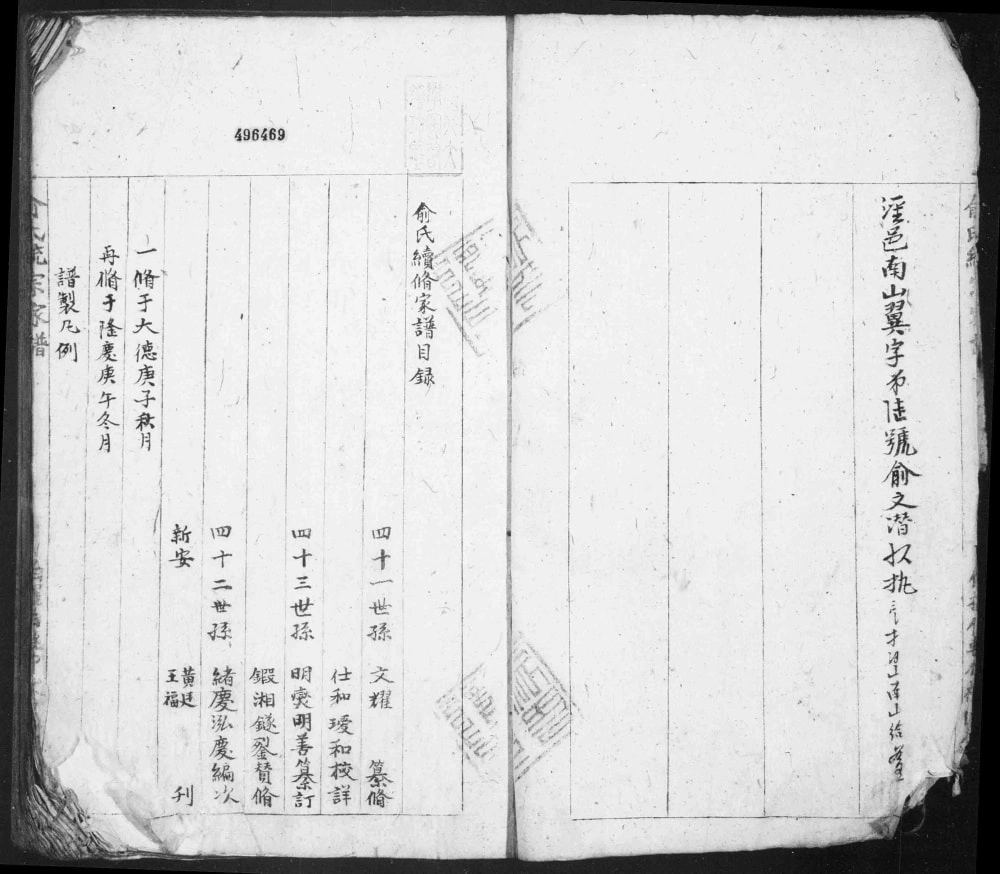 涇邑南山翼字苐陆號俞文潛収执
496469
俞氏續脩家譜目録
四十一世孫 文耀 纂脩
仕和璦和校詳
四十三世孫 明爕明善纂訂
鍜湘鐩鋆賛脩
四十二世孫 緒慶泓慶編次
新安 黃廷 王福 刋
一脩于大德庚子秋月
再脩于隆慶庚午冬月
譜製凡例
俞氏統宗家譜